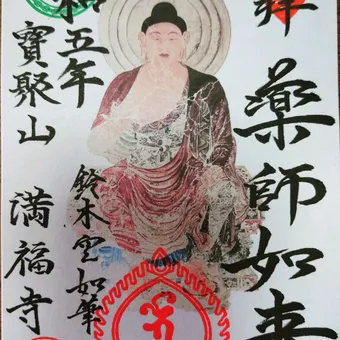 拝
薬師如来
鈴木空如筆
和五年
寶聚山 満福寺